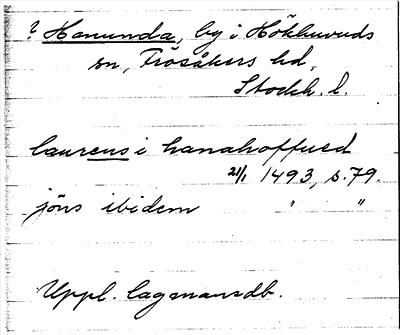 ? Hanunda, by i Hökhuvuds
sn, Frösåkers hd,
Stockh. l.
laurens i hanahoffued
21/1 1493, s. 79.
jöns ibidem " "
Uppl. lagmansdb.